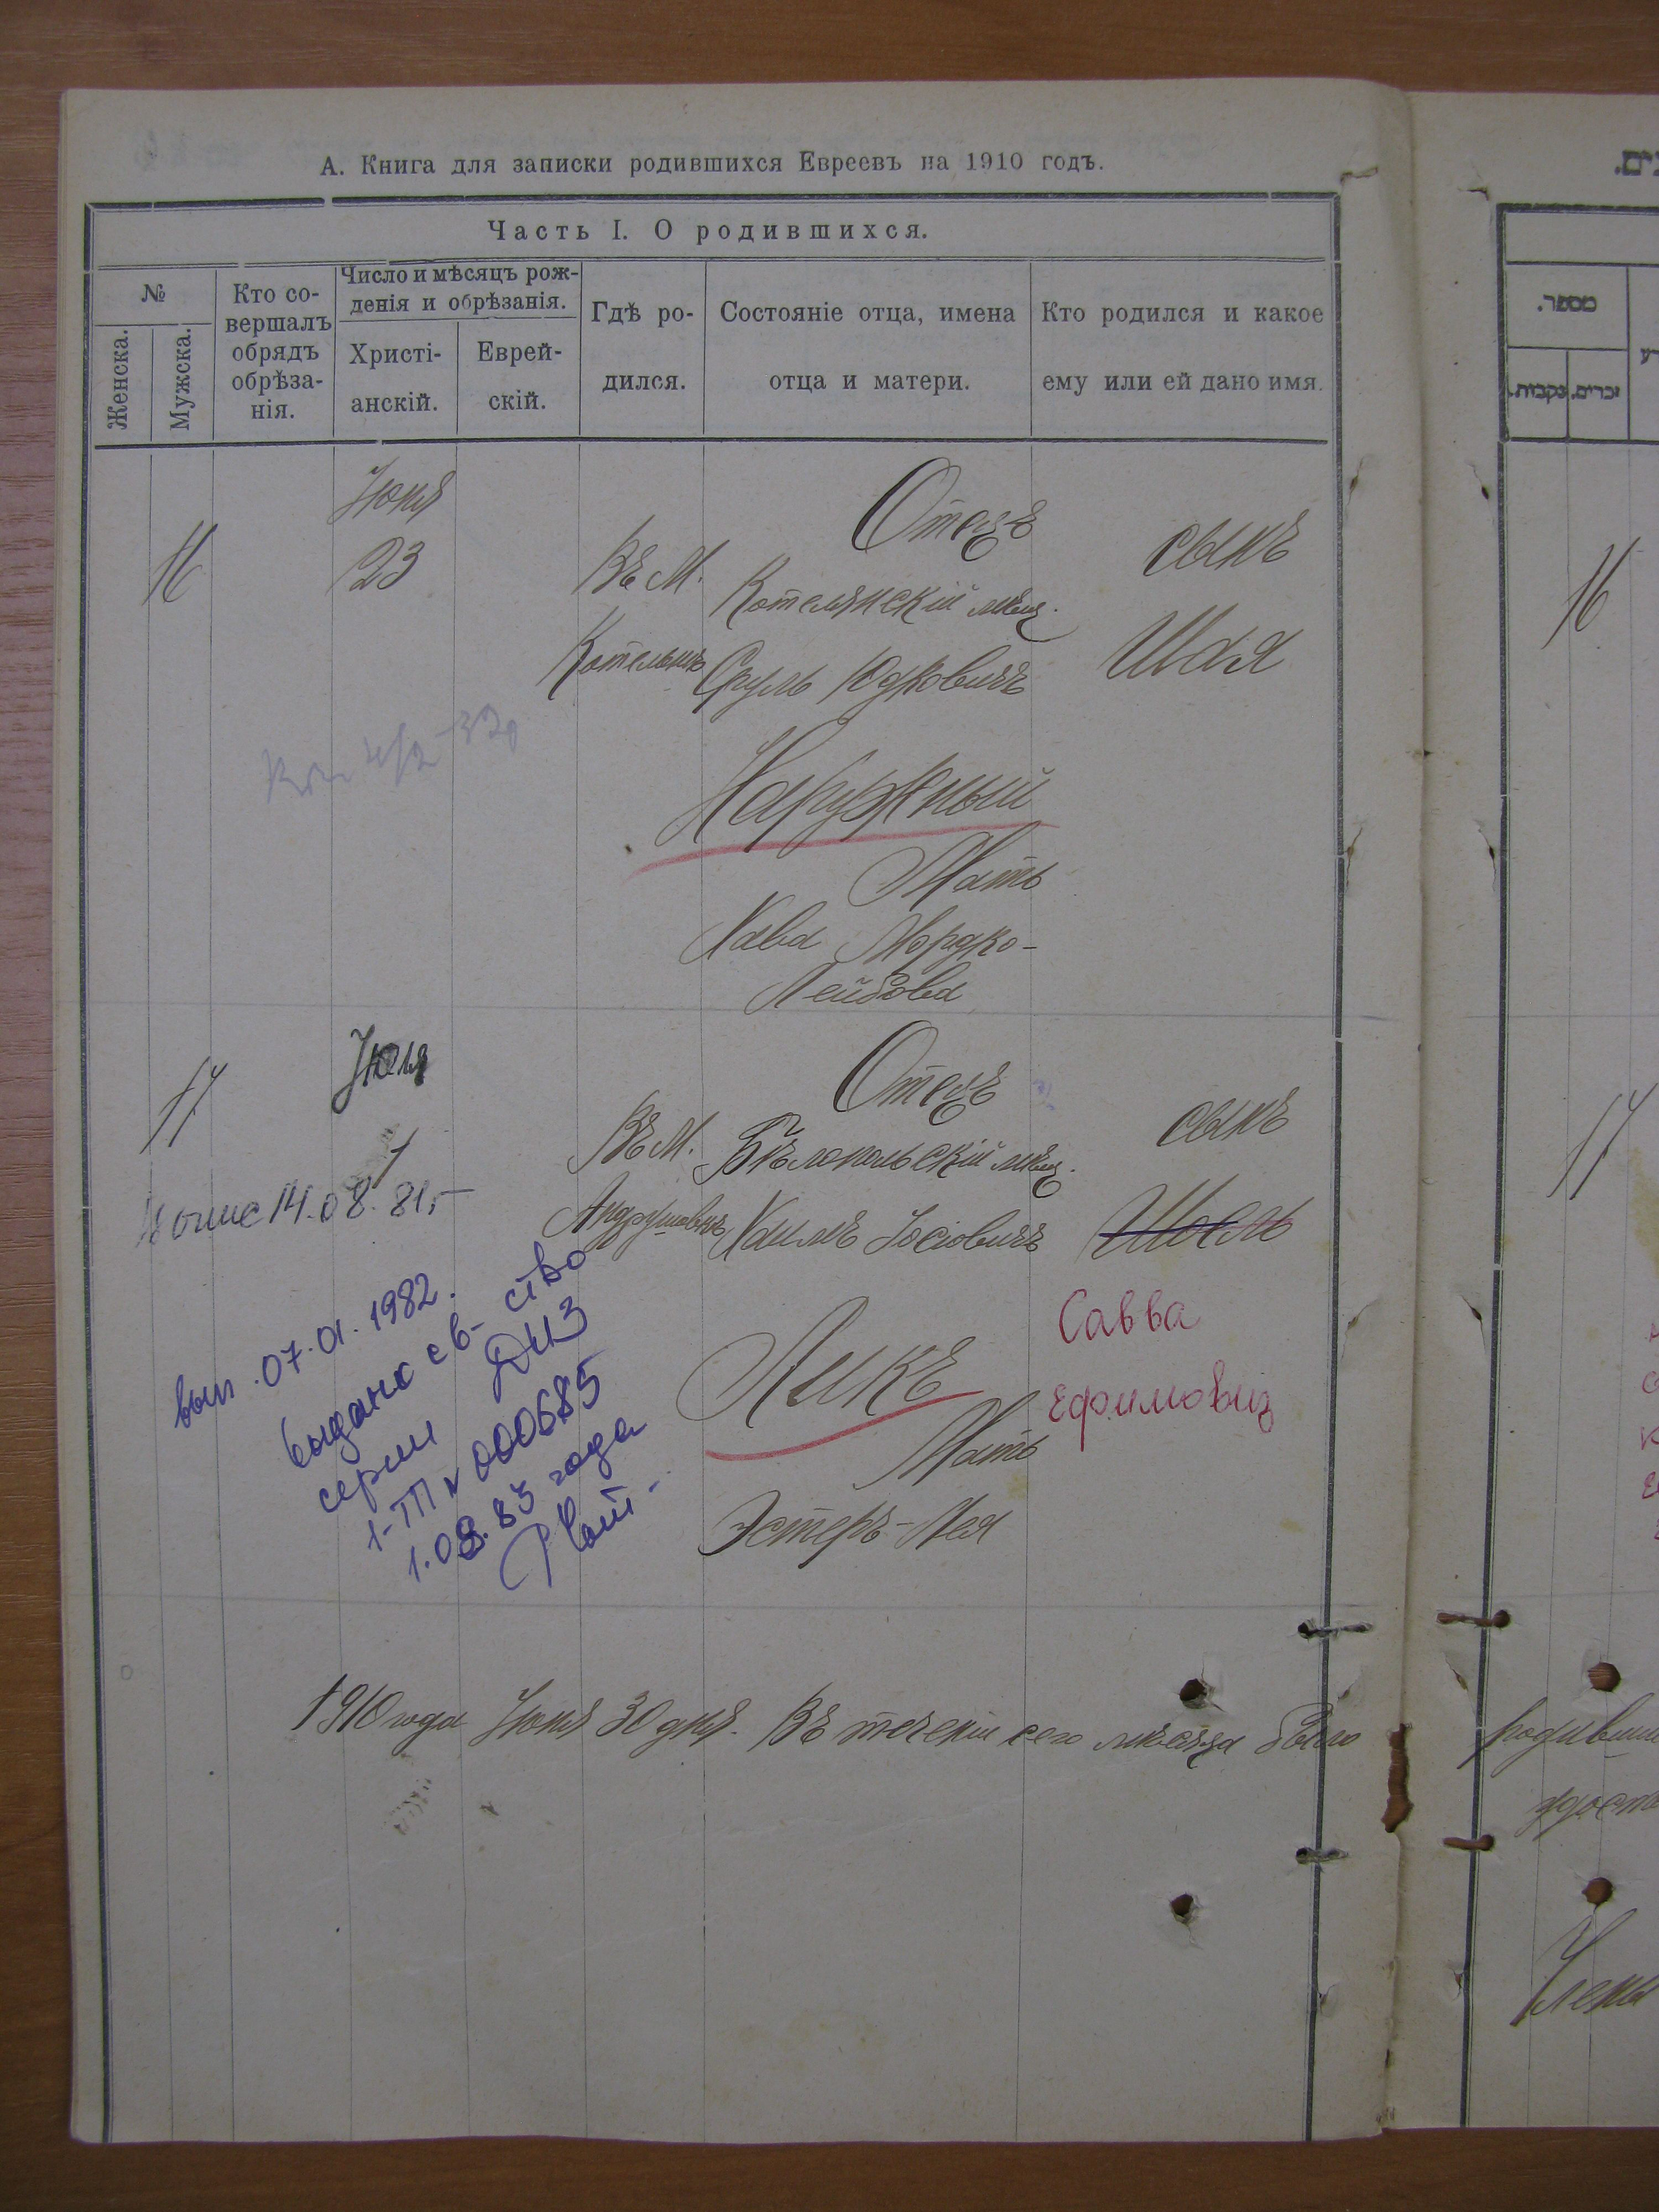 А. Книга для записки родившихся Евреевъ на 1910 годъ.
Часть I. О родившихся.
№
Женска.
Мужска.
Кто со-
вершалъ
обрядъ
обрѣза-
нія.
Число и мѣсяцъ рож-
денія и обрѣзанія.
Христі-
анскій.
Еврей-
скій.
Гдѣ ро-
дился.
Состояніе отца, имена
отца и матери.
Кто родился и какое
ему или ей дано имя.
16
Іюня
23
Въ М.
Котельнѣ
Отецъ
Котелянскій мѣщ.
Сруль Юдковичъ
Наружный
Мать
Хава Мордко-
Лейбова
сынъ
Шая
17
Іюля
1
Въ М.
Андрушовкѣ
Отецъ
Бѣлопольскій мѣщ.
Хаимъ Іосіовичъ
Ликъ
Мать
Эстеръ-Лея
сынъ
Шаель
Савва
Ефимович
14.08.81г
вып. 07.01.1982.
выдано св-ство
серии
1-ТП № 000685
1.08.83 года
1910 года Іюня 30 дня. Въ теченіи сего мѣсяца было
מספר.
זכרים.
נקבות.
16
17
родивши
Члены